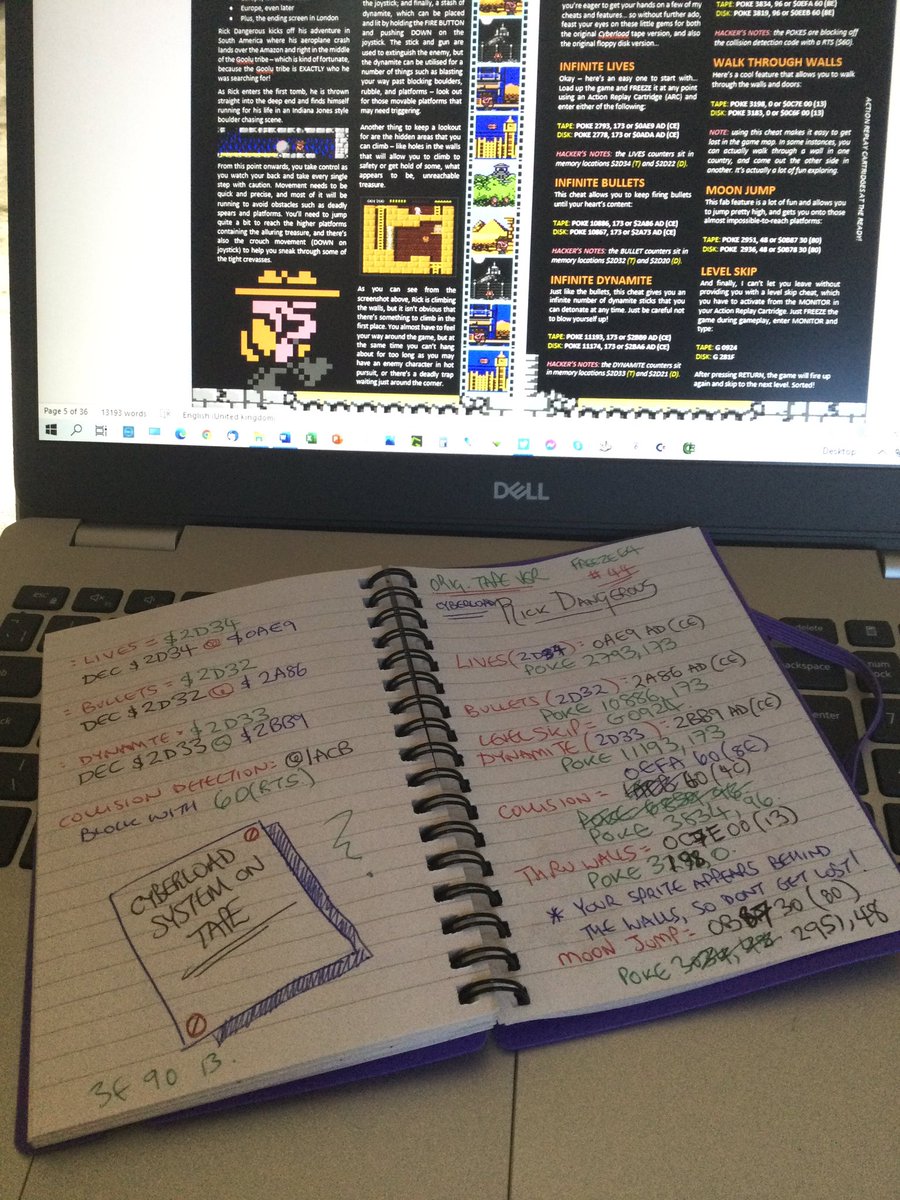 • Europe, even later
• Plus, the ending screen in London
Rick Dangerous kicks off his adventure in
South America where his aeroplane crash
lands over the Amazon and right in the middle
of the Goolu tribe – which is kind of fortunate,
because the Goolu tribe is EXACTLY who he
was searching for!
As Rick enters the first tomb, he is thrown
straight into the deep end and finds himself
running for his life in an Indiana Jones style
boulder chasing scene.
From this point onwards, you take control as
you watch your back and take every single
step with caution. Movement needs to be
quick and precise, and most of it will be
running to avoid obstacles such as deadly
spears and platforms. You'll need to jump
quite a bit to reach the higher platforms
containing the alluring treasure, and there's
also the crouch movement (DOWN on
joystick) to help you sneak through some of
the tight crevasses.
the joystick; and finally, a stash of
dynamite, which can be placed
and lit by holding the FIRE BUTTON
and pushing DOWN on the
joystick. The stick and gun are
used to extinguish the enemy, but
the dynamite can be utilised for a
number of things such as blasting
your way past blocking boulders,
rubble, and platforms – look out
for those movable platforms that
may need triggering.
Another thing to keep a lookout
for are the hidden areas that you
can climb – like holes in the walls
that will allow you to climb to
safety or get hold of some, what
appears to be, unreachable
treasure.
As you can see from the
screenshot above, Rick is climbing
the walls, but it isn't obvious that
there's something to climb in the
first place. You almost have to feel
your way around the game, but at
the same time you can't hang
about for too long as you may
have an enemy character in hot
pursuit, or there's a deadly trap
waiting just around the corner.
you're eager to get your hands on a few of my
cheats and features... so without further ado,
feast your eyes on these little gems for both
the original Cyberload tape version, and also
the original floppy disk version...
INFINITE LIVES
Okay – here's an easy one to start with...
Load up the game and FREEZE it at any point
using an Action Replay Cartridge (ARC) and
enter either of the following:
TAPE: POKE 2793, 173 or $0AE9 AD (CE)
DISK: POKE 2778, 173 or $0ADA AD (CE)
HACKER'S NOTES: the LIVES counters sit
in memory locations $2D34 (T) and $2D22 (D).
INFINITE BULLETS
This cheat allows you to keep firing bullets
until your heart's content:
TAPE: POKE 10886, 173 or $2A86 AD (CE)
DISK: POKE 10867, 173 or $2A73 AD (CE)
HACKER'S NOTES: the BULLET counters sit
in memory locations $2D32 (T) and $2D20 (D).
INFINITE DYNAMITE
Just like the bullets, this cheat gives you an
infinite number of dynamite sticks that you
can detonate at any time. Just be careful not
to blow yourself up!
TAPE: POKE 11193, 173 or $2BB9 AD (CE)
DISK: POKE 11174, 173 or $2BA6 AD (CE)
HACKER'S NOTES: the DYNAMITE counters sit
in memory locations $2D33 (T) and $2D21 (D).
TAPE: POKE 3834, 96 or $0EFA 60 (8E)
DISK: POKE 3819, 96 or $0EEB 60 (8E)
HACKER'S NOTES: the POKES are blocking off
the collision detection code with a RTS ($60).
WALK THROUGH WALLS
Here's a cool feature that allows you to walk
through the walls and doors:
TAPE: POKE 3198, 0 or $0C7E 00 (13)
DISK: POKE 3183, 0 or $0C6F 00 (13)
NOTE: using this cheat makes it easy to get
lost in the game map. In some instances, you
can actually walk through a wall in one
country, and come out the other side in
another. It's actually a lot of fun exploring.
MOON JUMP
This fab feature is a lot of fun and allows you
to jump pretty high, and gets you onto those
almost impossible-to-reach platforms:
TAPE: POKE 2951, 48 or $0B87 30 (80)
DISK: POKE 2936, 48 or $0B78 30 (80)
LEVEL SKIP
And finally, I can't let you leave without
providing you with a level skip cheat, which
you have to activate from the MONITOR in
your Action Replay Cartridge. Just FREEZE the
game during gameplay, enter MONITOR and
type:
TAPE: G 0924
DISK: G 281F
After pressing RETURN, the game will fire up
again and skip to the next level. Sorted!
ACTION REPLAY CARTRIDGES AT THE READY!
Page 5 of 36 13193 words English (United Kingdom)
Desktop
DELL
esc
backspace
num lock
enter
: LIVES = $2D34
DEC $2D34 @ $0AE9
: BULLETS = $2D32
DEC $2D32 @ $2A86
: DYNAMITE = $2D33
DEC $2D33 @ $2BB9
COLLISION DETECTION = @1ACB
BLOCK WITH 60 (RTS)
CYBERLOAD
SYSTEM ON
TAPE
3E 90 B.
ORIG. TAPE VER FREEZE64
#44
CYBERLOAD RICK DANGEROUS
LIVES (2D34) : 0AE9 AD (CE)
POKE 2793, 173
BULLETS (2D32) : 2A86 AD (CE)
POKE 10886, 173
LEVEL SKIP = G0924
DYNAMITE (2D33) : 2BB9 AD (CE)
POKE 11193, 173
0EFA 60 (8E)
COLLISION = 60 (4C)
POKE 3834, 96.
THRU WALLS = 0C7E 00 (13)
POKE 3198, 0.
* YOUR SPRITE APPEARS BEHIND
THE WALLS, SO DON'T GET LOST!
MOON JUMP = 0B87 30 (80)
POKE 2951, 48